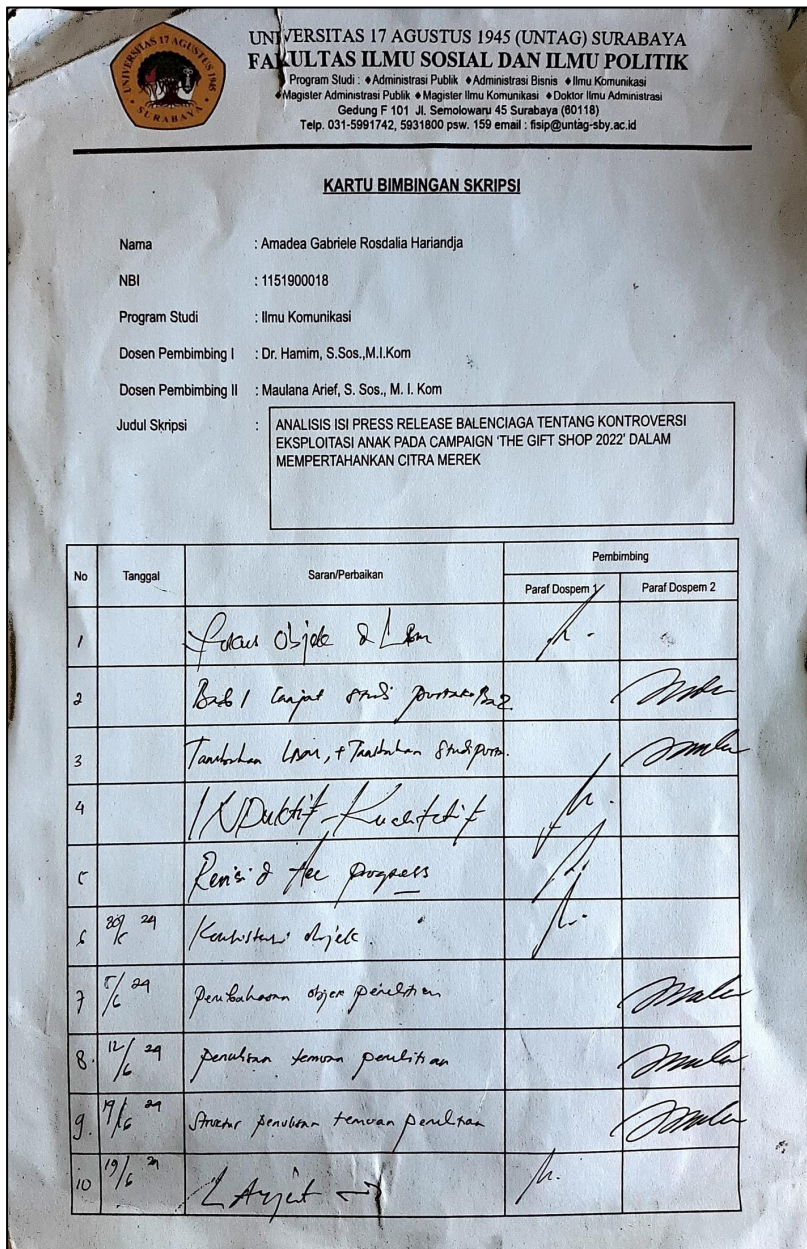 UNIVERSITAS 17 AGUSTUS 1945 (UNTAG) SURABAYA
FAKULTAS ILMU SOSIAL DAN ILMU POLITIK
Program Studi : ♦Administrasi Publik ♦Administrasi Bisnis ♦Ilmu Komunikasi
♦Magister Administrasi Publik ♦Magister Ilmu Komunikasi ♦Doktor Ilmu Administrasi
Gedung F 101 Jl. Semolowaru 45 Surabaya (60118)
Telp. 031-5991742, 5931800 psw. 159 email : fisip@untag-sby.ac.id
UNIVERSITAS 17 AGUSTUS 1945
SURABAYA
KARTU BIMBINGAN SKRIPSI
Nama : Amadea Gabriele Rosdalia Hariandja
NBI : 1151900018
Program Studi : Ilmu Komunikasi
Dosen Pembimbing I : Dr. Hamim, S.Sos.,M.I.Kom
Dosen Pembimbing II : Maulana Arief, S. Sos., M. I. Kom
Judul Skripsi : ANALISIS ISI PRESS RELEASE BALENCIAGA TENTANG KONTROVERSI
EKSPLOITASI ANAK PADA CAMPAIGN ‘THE GIFT SHOP 2022’ DALAM
MEMPERTAHANKAN CITRA MEREK
No Tanggal Saran/Perbaikan Pembimbing
Paraf Dospem 1 Paraf Dospem 2
1 Fokus Objek &
2 Bab 1 lanjut studi pustaka
3
4 INDuktif-Kualitatif
5 Revisi & Acc progress
6 Konsistensi objek.
7 5/6 24 objek penelitian
8. 12/6 24 penulisan temuan penelitian
9. 19/6 24 Struktur penulisan temuan penelitian
10 19/6 Lanjut →